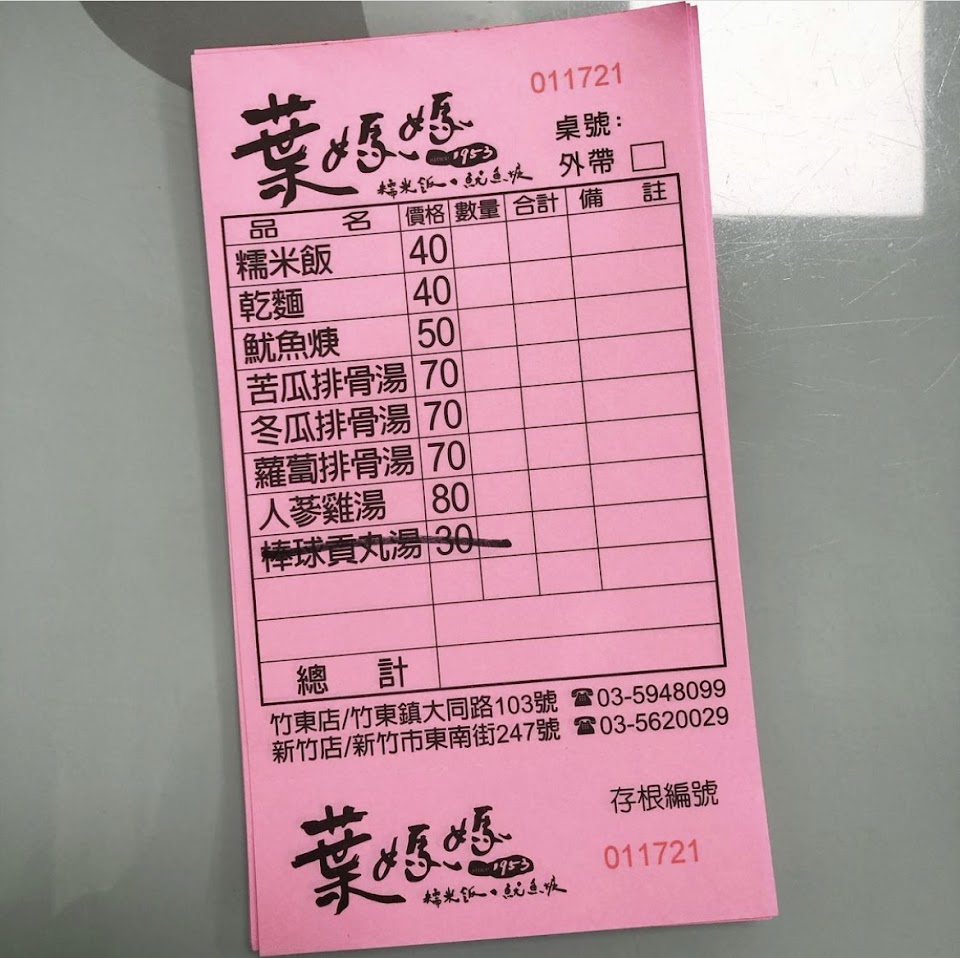 011721
葉媽媽
since 1953
糯米飯・魷魚焿
桌號:
外帶
品名 價格 數量 合計 備註
糯米飯 40
乾麵 40
魷魚焿 50
苦瓜排骨湯 70
冬瓜排骨湯 70
蘿蔔排骨湯 70
人蔘雞湯 80
棒球貢丸湯 30
總計
竹東店/竹東鎮大同路103號 ☎03-5948099
新竹店/新竹市東南街247號 ☎03-5620029
存根編號
葉媽媽
since 1953
糯米飯・魷魚焿
011721